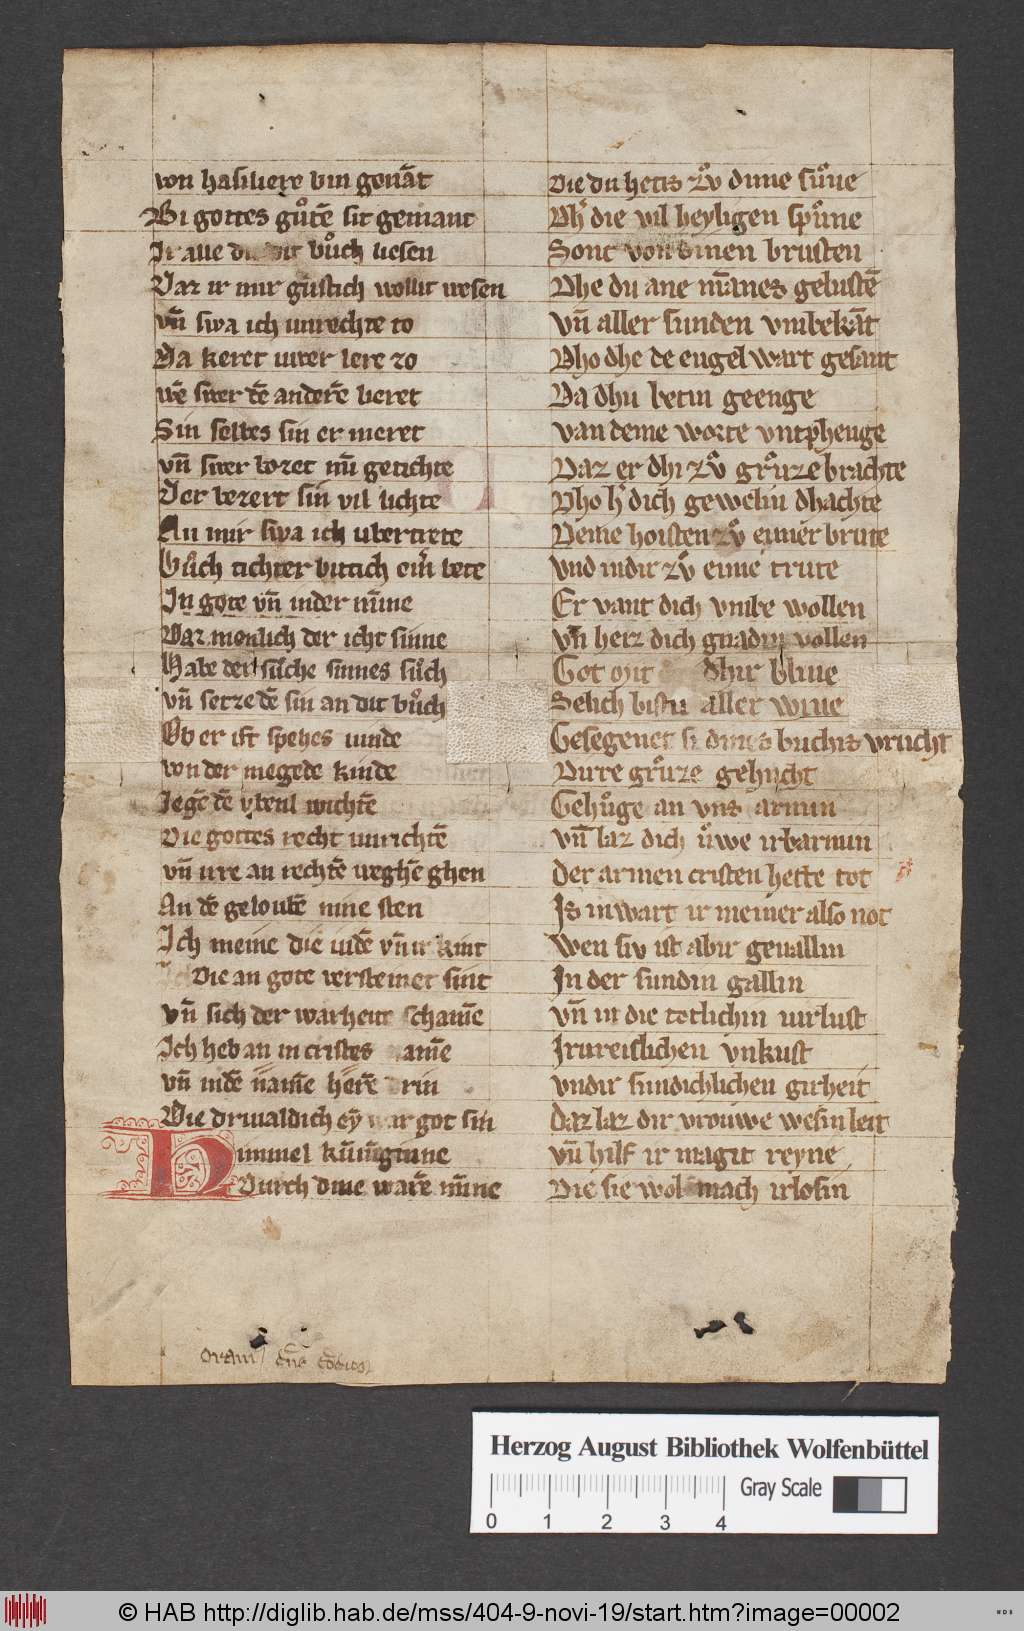 von hasiliere bin genāt
Bi gottes gůtē sit gemant
Ir alle di dit bůch liesen
Daz ir mir gustich wollit wesen
vn̄ swa ich unrechte to
Da keret uwer lere zo
wē swer dē anderē beret
Sin selbes sin er meret
vn̄ swer bozet mī getichte
Der bezert sin vil lichte
An mir swa ich ubertrete
Gůch tichter bittich bete
In gote vn̄ inder mīne
Daz menlich der icht sinne
Habe der sůche sinnes sůch
vn̄ setze dē sin an dit bůch
Ob er ist spehes uinde
von der megede kinde
Iegē dē ybeul wichtē
Die gottes recht unrichtē
vn̄ ure an rechtē weghē ghen
An dē geloubē nine sten
Ich meine die iudē vn̄ ir kint
Die an gote versteinet sint
vn̄ sich der warheit schamē
Ich heb an in cristes amē
vn̄ indē namē herē rin
Die driualdich ey war got sin
Himmel kūniginne
Durch dine warē mīne
Die du hetis zů dime sůne
Dh' die vil heyligen spůne
Sonc von dinen brusten
Dhe du ane mānes gelustē
vn̄ aller sunden vmbekāt
Dho dhe de engel wart gesant
Da dhu betin geenge
van deme worte vntphenge
Daz er dhi zů grůze brachte
Dho h' dich gewelin dhachte
Deme hoisten zů einer brute
vnd indir zů eime trute
Er vant dich vmbe wollen
vn̄ herz dich gnadin vollen
Got mit dhir blîue
Selich bistu aller wiue
Gesegenet si dines buchis vrucht
Dure grůze gehucht
Gehůge an vns armin
vn̄ laz dich ůwe irbarmin
der armen cristen hette tot
Is inwart ir meiner also not
Wen siv ist abir geuallin
In der sundin gallin
vn̄ in die totlichin uirlust
Irureislichen vnkust
vndir sundichlichen girheit
daz laz dir vrouwe wesin leit
vn̄ hilf ir magit reyne
Die sie wol mach irlosin
Herzog August Bibliothek Wolfenbüttel
Gray Scale
0 1 2 3 4
© HAB http://diglib.hab.de/mss/404-9-novi-19/start.htm?image=00002